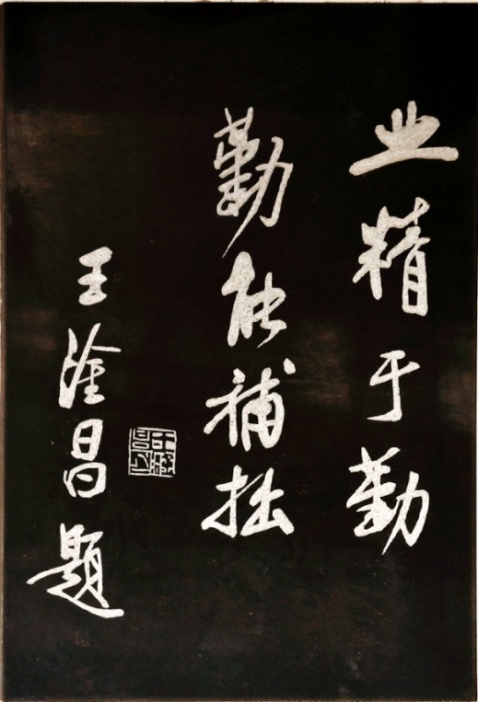 业精于勤
勤能补拙
王淦昌题